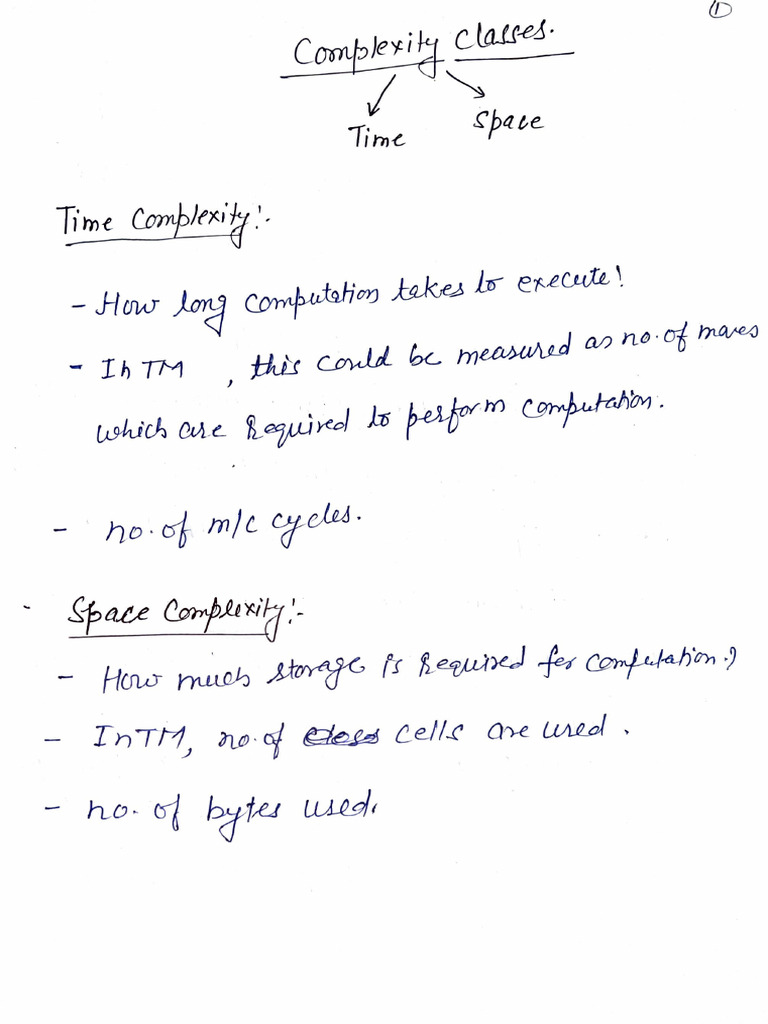 ①
Complexity Classes.
Time Space
Time Complexity:-
- How long computation takes to execute!
- In TM, this could be measured as no. of moves
which are required to perform computation.
- no. of m/c cycles.
Space Complexity:-
- How much storage is required for computation?
- In TM, no. of cells are used.
- no. of bytes used.